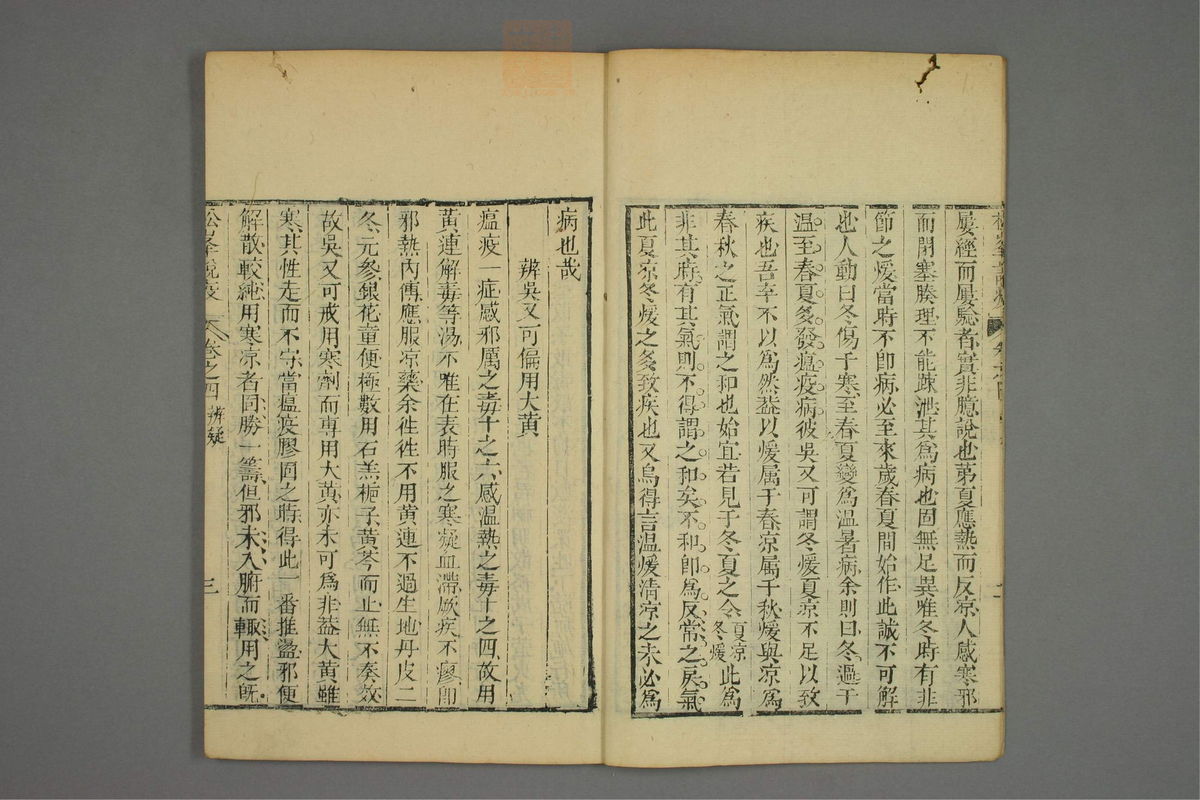 屢經而屢驗者實非臆說也第夏應熱而反凉人感寒邪
而閉塞腠理不能疎泄其為病也固無足異唯冬時有非
節之煖當時不即病必至來歲春夏間始作此誠不可解
也人動曰冬傷于寒至春夏變為温暑病余則曰冬過于
温至春夏多發瘟疫病彼吳又可謂冬煖夏凉不足以致
疾也吾卒不以為然葢以煖属于春凉属于秋煖與凉為
春秋之正氣謂之和也始宜若見于冬夏之令夏凉冬煖此為
非其時有其氣則不得謂之和矣不和即為反常之戾氣
此夏凉冬煖之多致疾也又烏得言温煖清凉之未必為
病也哉
辨吳又可偏用大黄
瘟疫一症感邪厲之毒十之六感温熱之毒十之四故用
黄連解毒等湯不唯在表時服之寒凝血滯厥疾不瘳即
邪熱内傳應服凉藥余徃徃不用黄連不過生地丹皮二
冬元參銀花童便極數用石羔梔子黄芩而止無不奏效
故吳又可戒用寒劑而専用大黄亦未可為非葢大黄雖
寒其性走而不守當瘟疫膠固之時得此一番推盪邪便
解散較純用寒凉者固勝一籌但邪未入腑而輒用之旣
松峯說疫 卷之四 辨疑 三